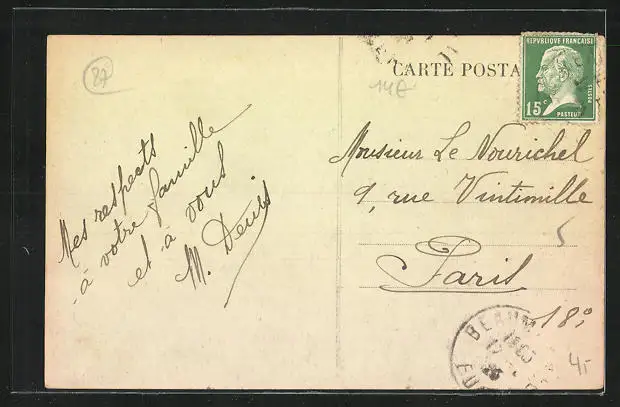 87
CARTE POSTA
14E
REPVBLIQVE FRANÇAISE
15c
POSTES
PASTEUR
Mes respects
à votre famille
et à vous
M. Denis
Monsieur Le Nourichel
9, rue Vintimille
5
Paris
18°
BEAUM
EURE
4-